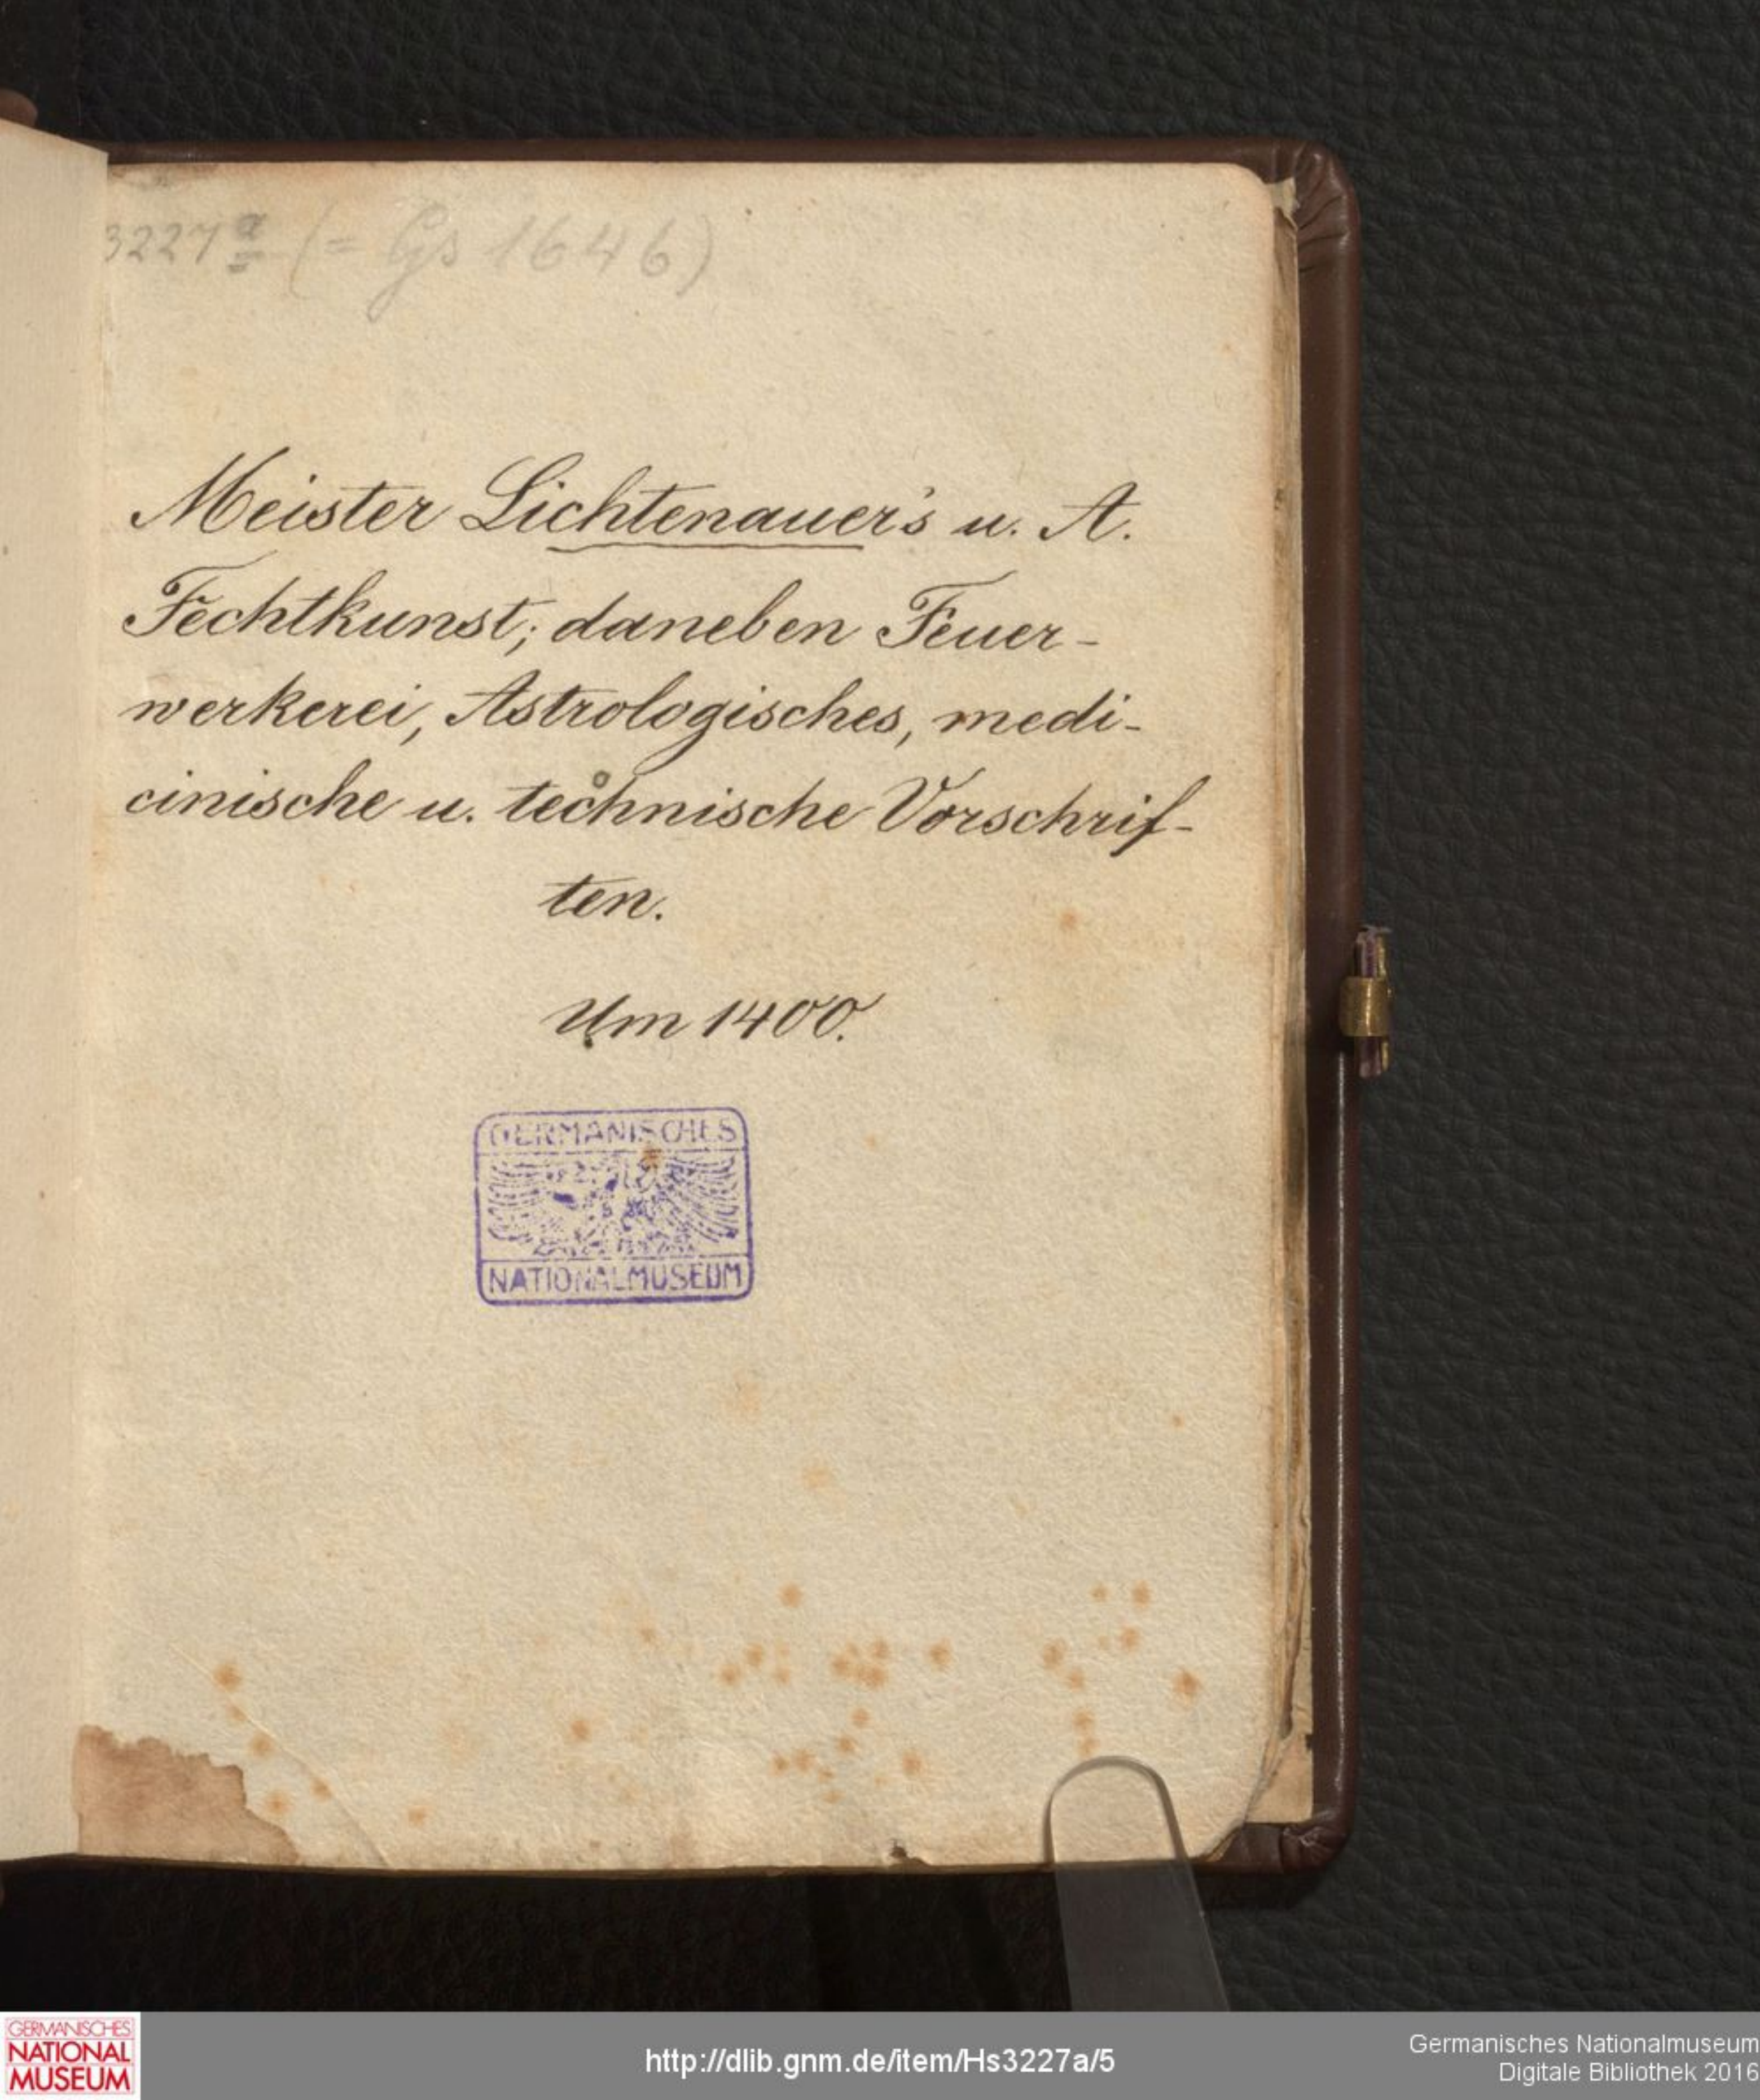 3227a (= Gs 1646)
Meister Lichtenauer's u. A.
Fechtkunst; daneben Feuer-
werkerei, Astrologisches, medi-
cinische u. technische Vorschrif-
ten.
Um 1400.
GERMANISCHES
NATIONALMUSEUM
GERMANISCHES
NATIONAL
MUSEUM
http://dlib.gnm.de/item/Hs3227a/5
Germanisches Nationalmuseum
Digitale Bibliothek 2016